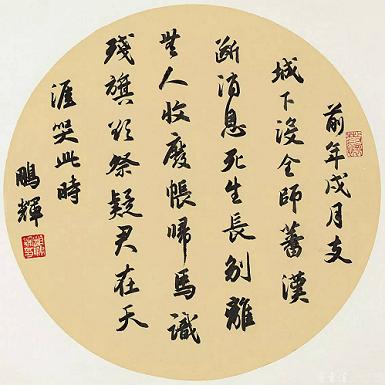 前年戍月支
城下沒全師蕃漢
断消息死生長別離
無人收廢帳歸馬識
殘旗欲祭疑君在天
涯哭此時
鵬輝